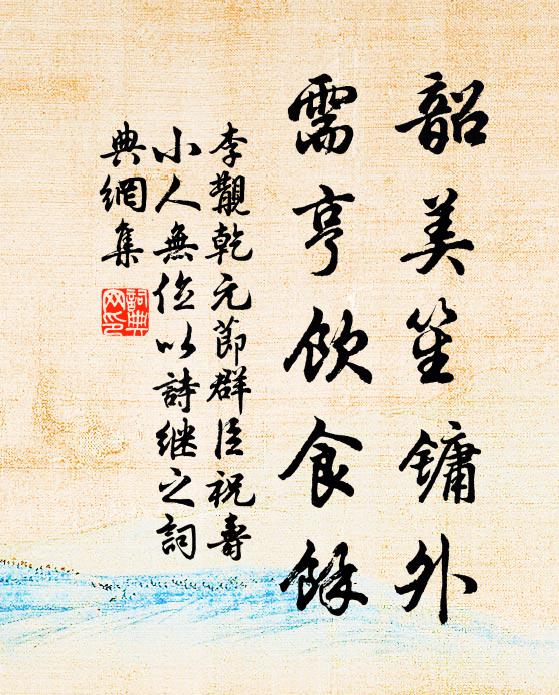 韶美笙鏞外
需亨飲食餘
李覯乾元節群臣祝壽
小人無位以詩繼之詞
典網集
詞典
网印